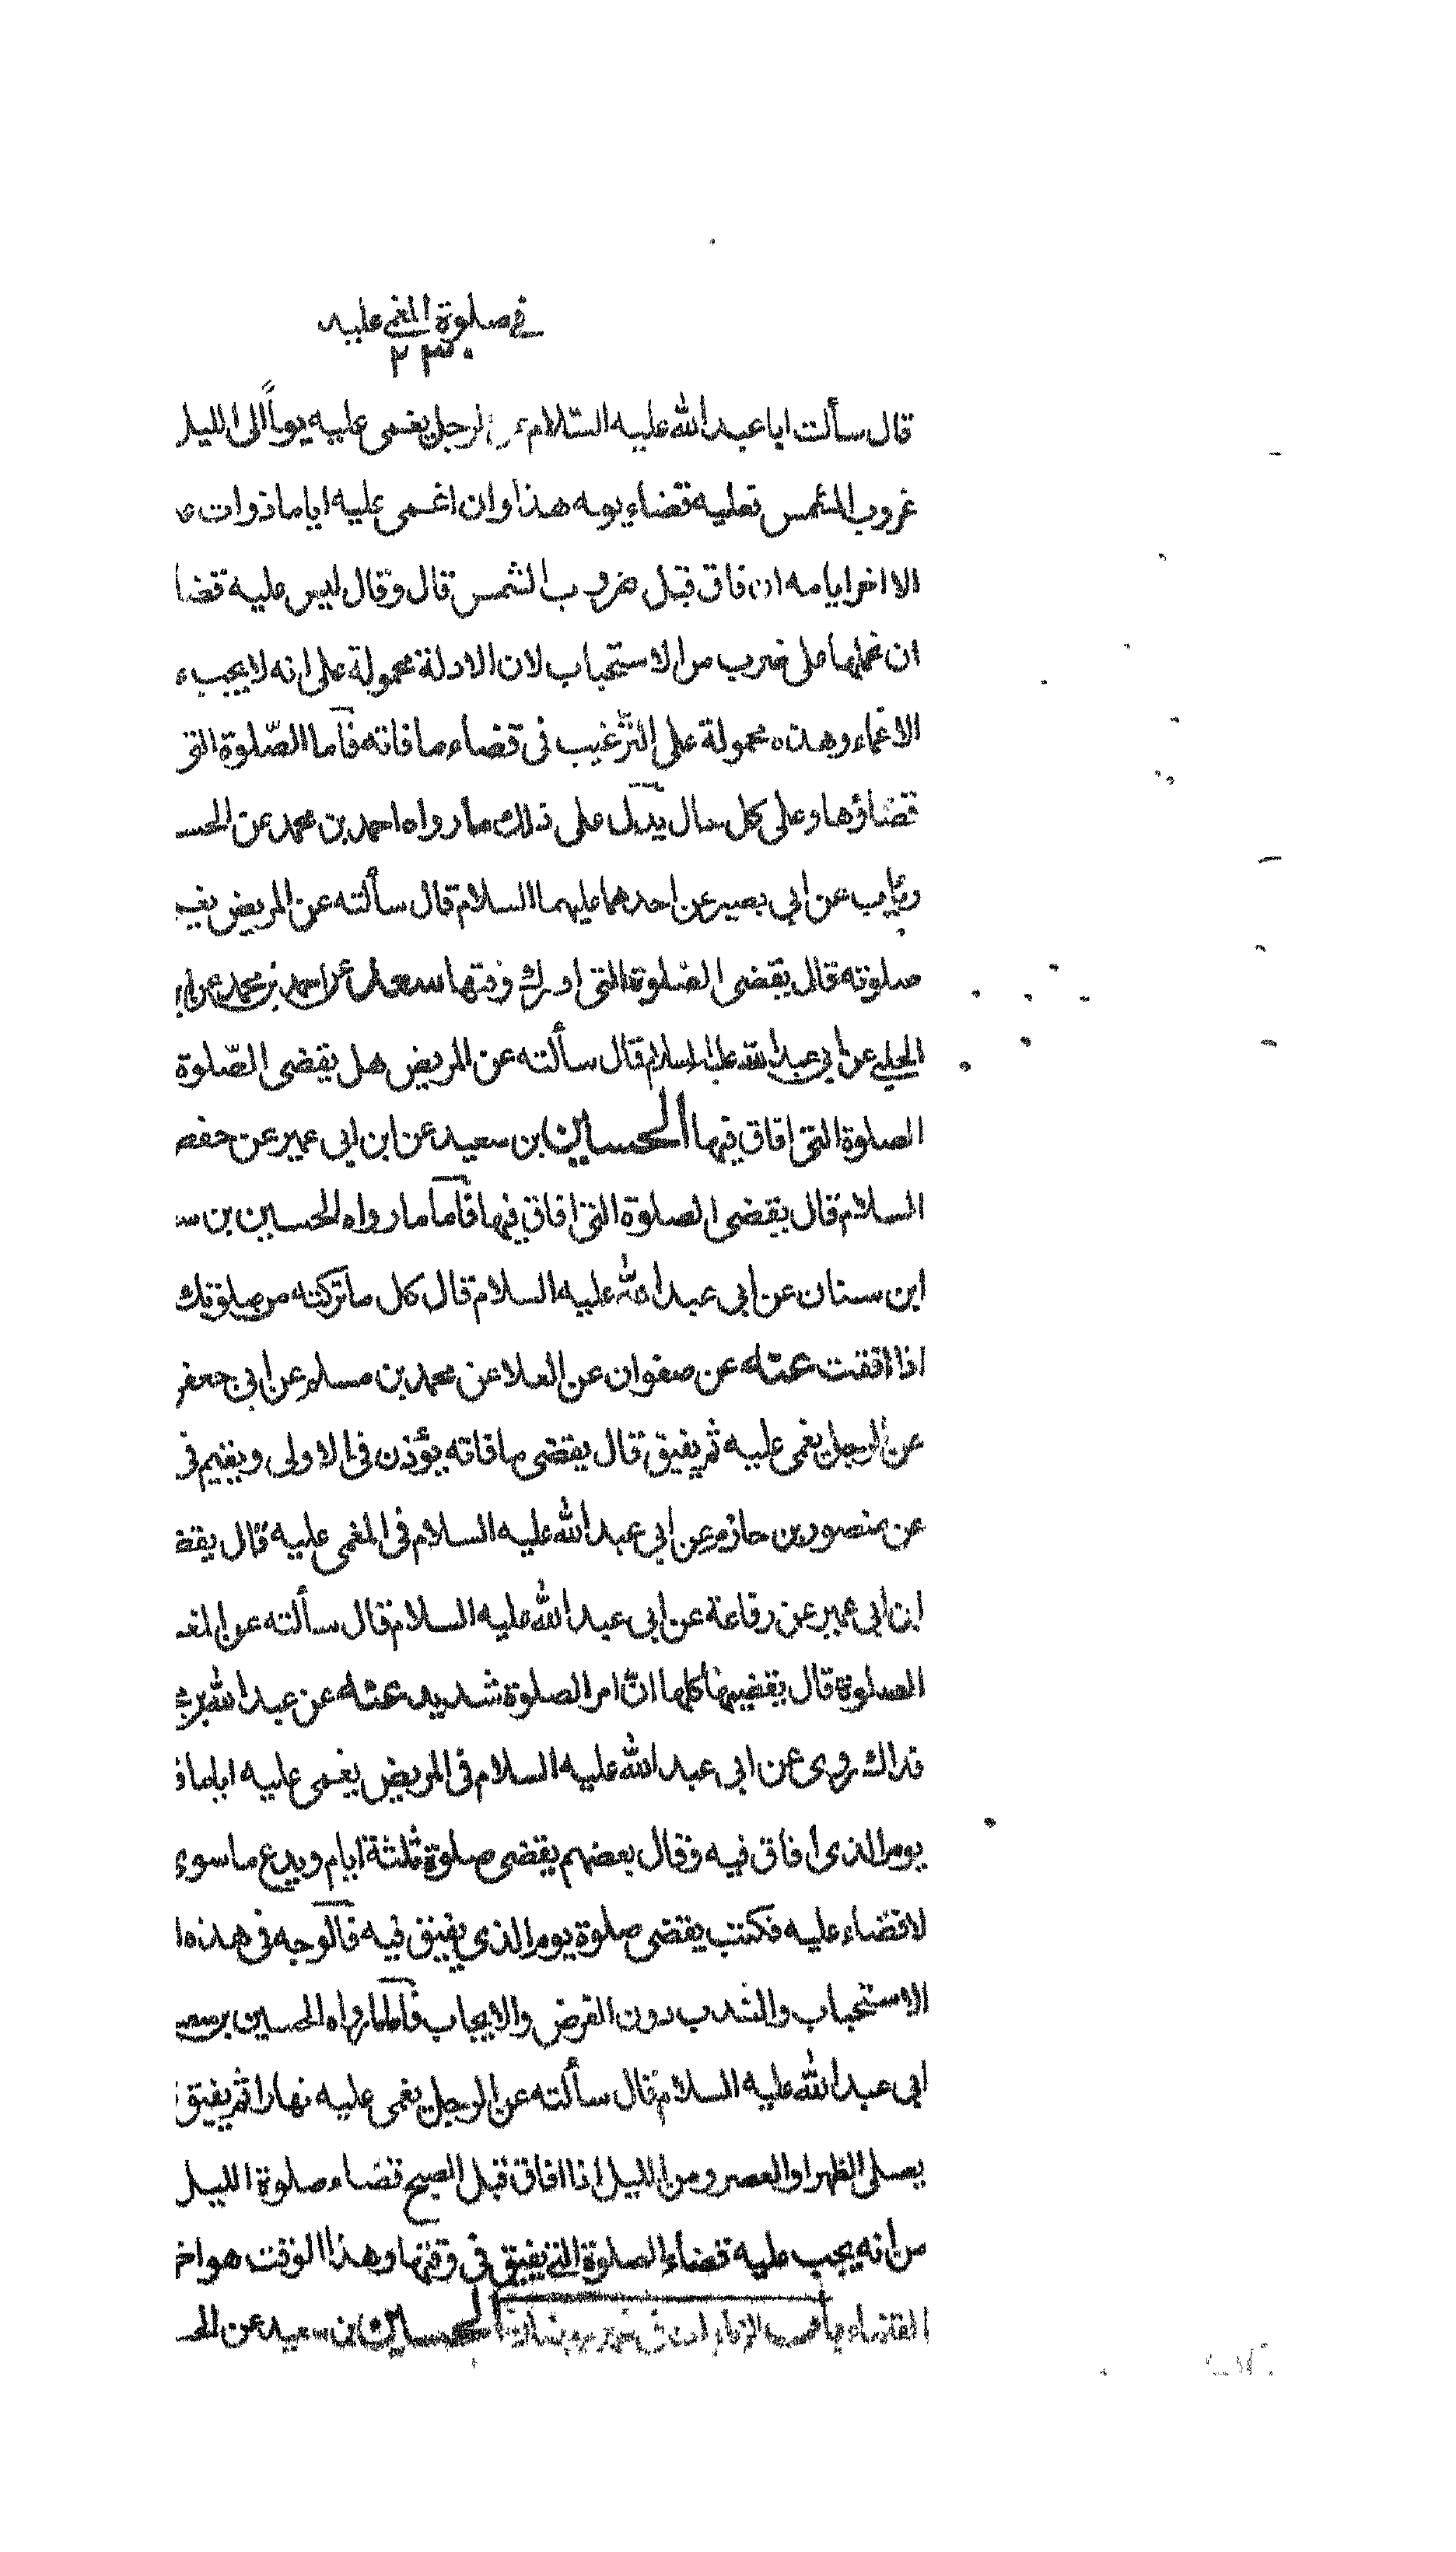 في صلوة المغمى عليه
٢٣٠
قال سألت ابا عبد الله عليه السلام عن الرجل يغمى عليه يوماً الى الليل
غروب الشمس فعليه قضاء يومه هذا وان اغمى عليه اياما ذوات
الا اخر ايامه ان فاق قبل غروب الشمس قال وقال ليس عليه قضا
ان نحملها على ضرب من الاستحباب لان الادلة محمولة على انه لا يجب
الاغماء وهذه محمولة على الترغيب فى قضاء ما فاته فاما الصّلوة التى
قضاؤها وعلى كل حال يدل على ذلك ما رواه احمد بن محمد عن الحسـ
رئاب عن ابي بصير عن احدهما عليهما السلام قال سألته عن المريض يغمـ
صلوته قال يقضى الصّلوة التى ادرك وقتها سعد عن احمد بن محمد عن ا
الحلبي عن ابي عبد الله عليه السلام قال سألته عن المريض هل يقضى الصّلوة
الصلوة التى افاق فيها الحسين بن سعيد عن ابن ابى عمير عن حفص
السلام قال يقضى الصلوة التى افاق فيها فاما ما رواه الحسين بن سـ
ابن سنان عن ابى عبد الله عليه السلام قال كل ما تركته من صلوتك
اذا افقت عنه عن صفوان عن العلا عن محمد بن مسلم عن ابى جعفر
عن الرجل يغمى عليه ثم يفيق قال يقضى ما فاته يؤذن فى الاولى ويقيم فى
عن منصور بن حازم عن ابي عبد الله عليه السلام فى المغمى عليه قال يقضـ
ابن ابي عمير عن رفاعة عن ابى عبد الله عليه السلام قال سألته عن المغـ
الصلوة قال يقضيها كلها انّ امر الصلوة شديد عنه عن عبد الله بن مح
فداك روى عن ابى عبد الله عليه السلام فى المريض يغمى عليه اياما فـ
يوم الذى افاق فيه وقال بعضهم يقضى صلوة ثلثة ايام ويدع ما سوى
لا قضاء عليه فكتب يقضى صلوة يوم الذى يفيق فيه فالوجه فى هذه ا
الاستحباب والندب دون الفرض والايجاب فاما ما رواه الحسين بن سعيـ
ابى عبد الله عليه السلام قال سألته عن الرجل يغمى عليه نهارا ثم يفيق
يصلى الظهر والعصر ومن الليل اذا افاق قبل الصبح قضاء صلوة الليل
من انه يجب عليه قضاء الصلوة التى يفيق فى وقتها وهذا الوقت هو اخـ
القضاء الحسين بن سعيد عن الحـ